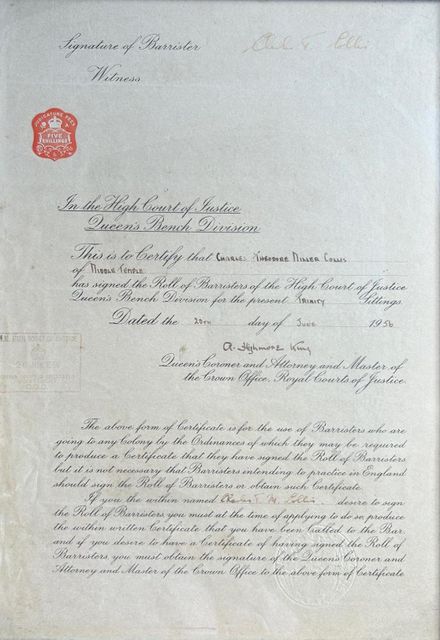 Signature of Barrister
Witness
JUDICATURE FEES
FIVE
SHILLINGS
In the High Court of Justice
Queen's Bench Division
This is to Certify that CHARLES THEODORE MILLER COLLIS
of MIDDLE TEMPLE
has signed the Roll of Barristers of the High Court of Justice
Queen's Bench Division for the present TRINITY Sittings.
Dated the 20TH day of JUNE 1956
A. Highmore King
Queen's Coroner and Attorney and Master of
the Crown Office, Royal Courts of Justice.
The above form of Certificate is for the use of Barristers who are
going to any Colony by the Ordinances of which they may be required
to produce a Certificate that they have signed the Roll of Barristers
but it is not necessary that Barristers intending to practice in England
should sign the Roll of Barristers or obtain such Certificate.
If you the within named desire to sign
the Roll of Barristers, you must at the time of applying to do so, produce
the within written Certificate that you have been Called to the Bar,
and if you desire to have a Certificate of having signed the Roll of
Barristers, you must obtain the signature of the Queen's Coroner and
Attorney and Master of the Crown Office to the above form of Certificate